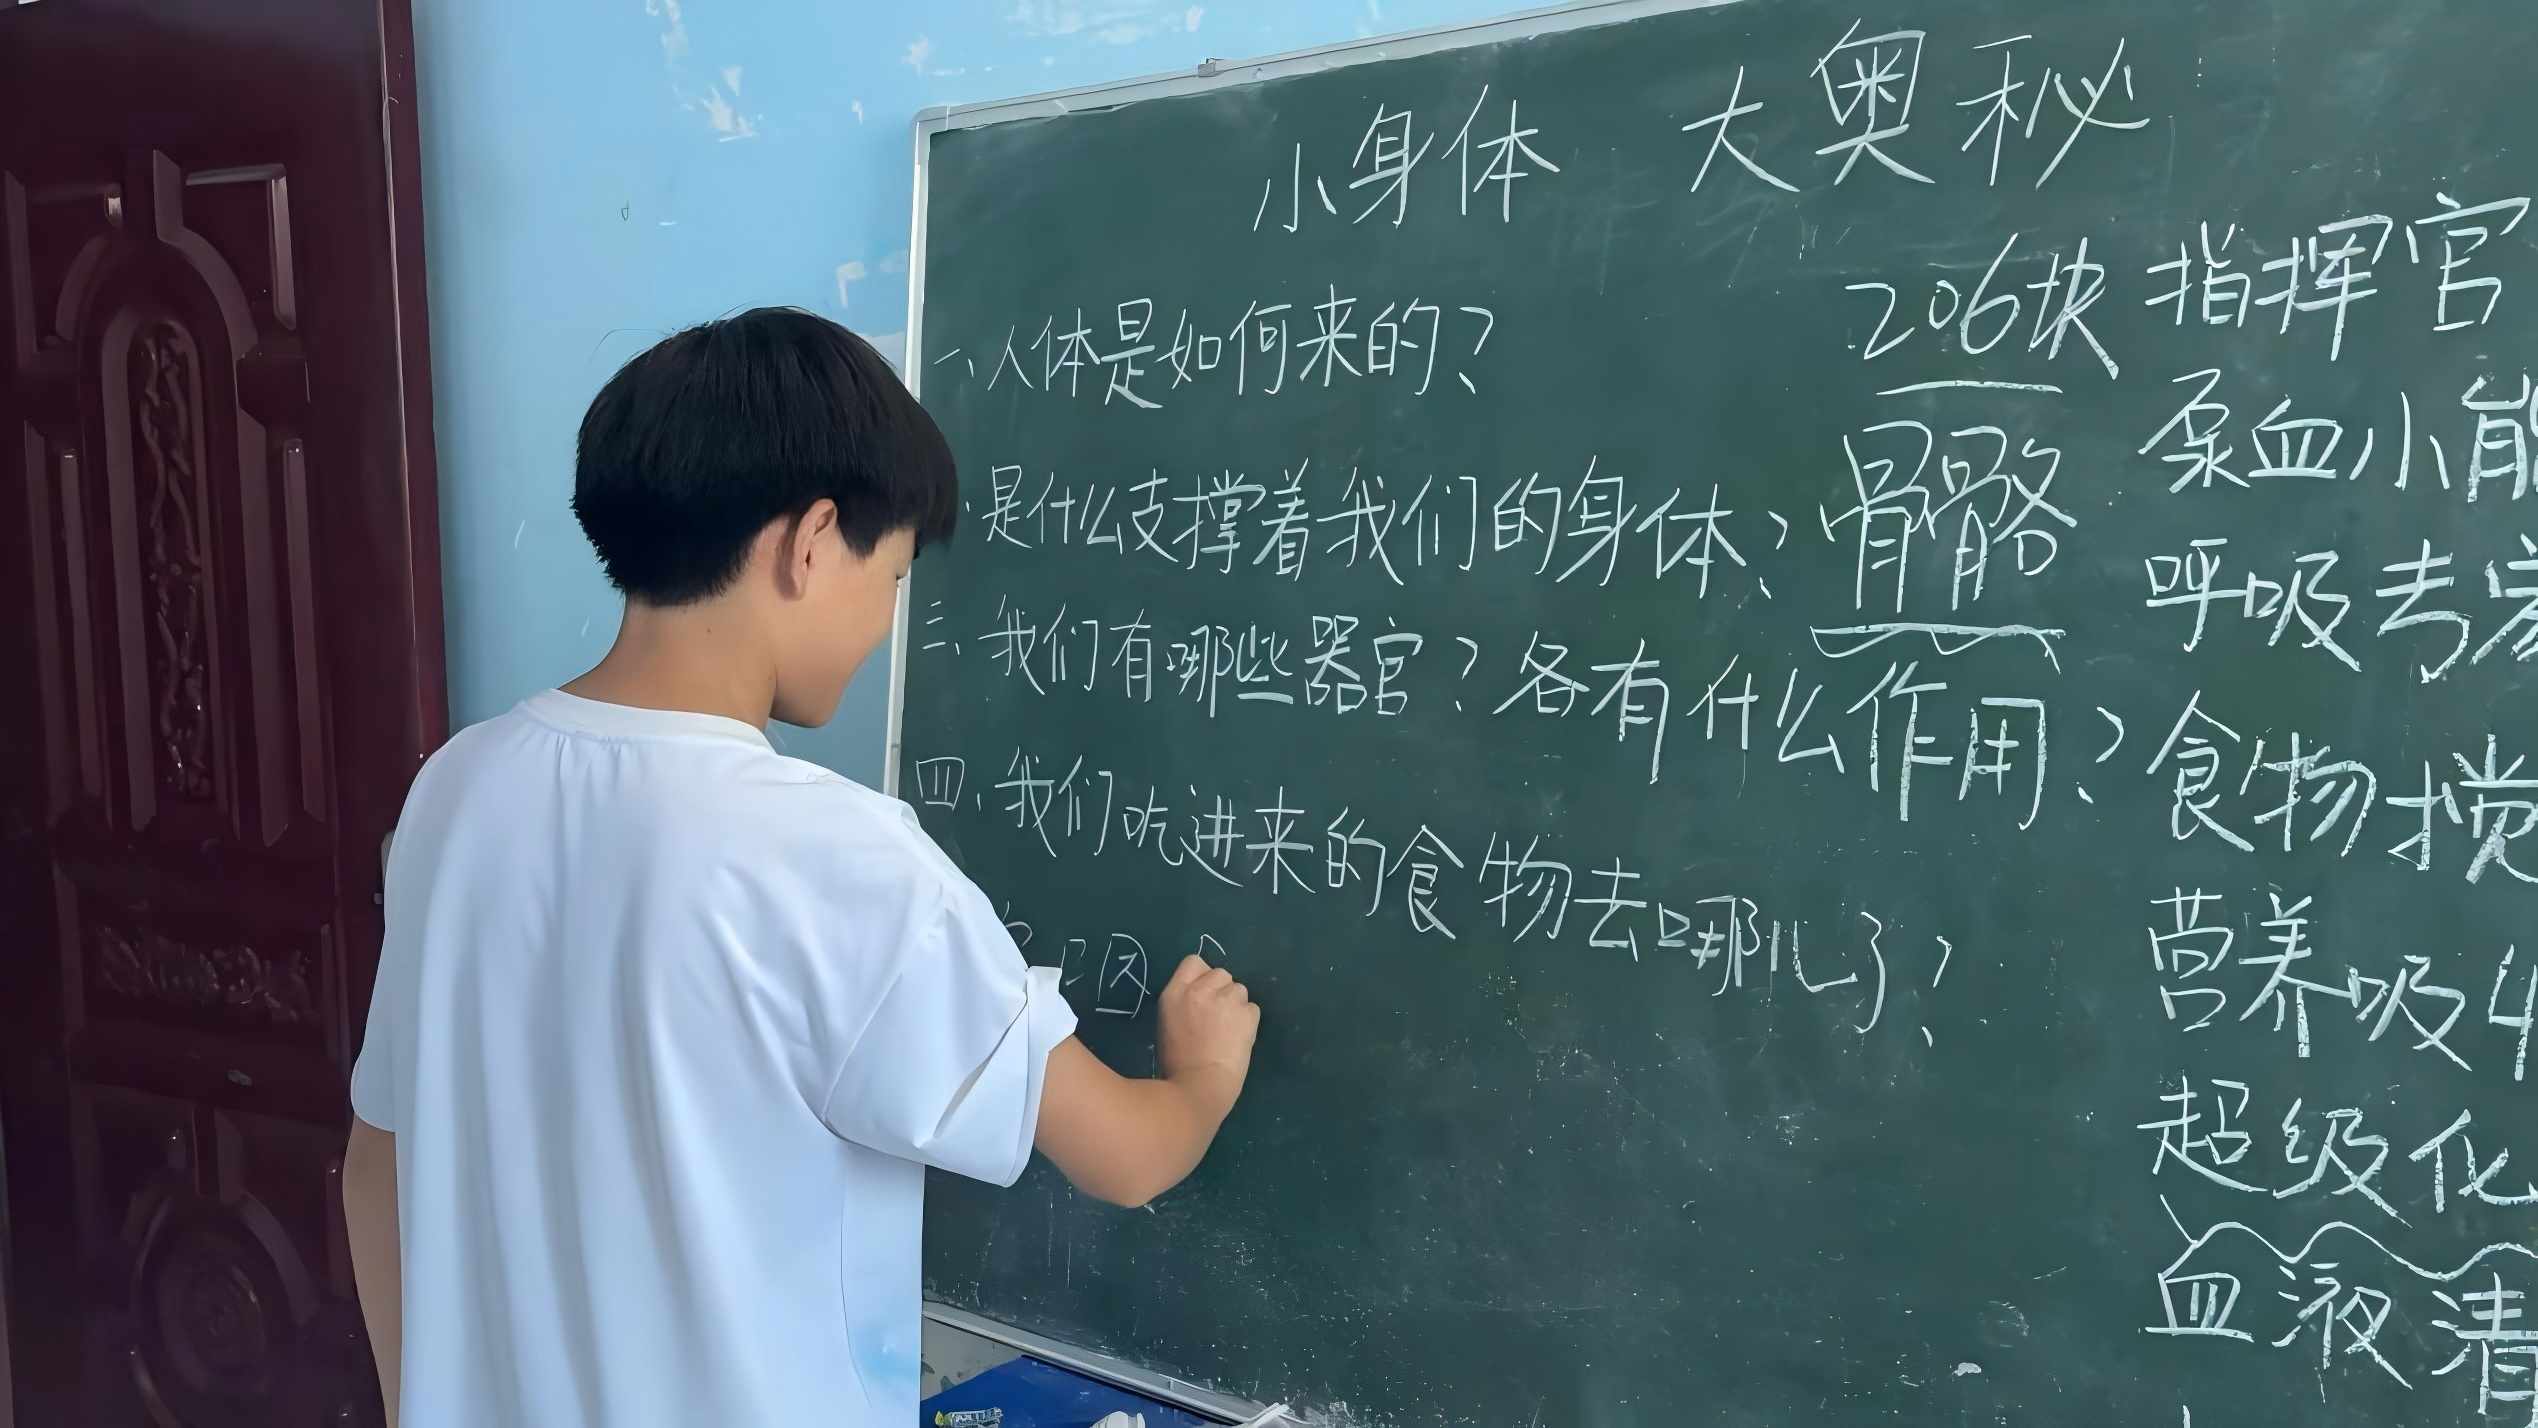 小身体 大奥秘
一、人体是如何来的?
是什么支撑着我们的身体?
三、我们有哪些器官?各有什么作用?
四、我们吃进来的食物去哪儿了?
206块
骨骼
指挥官
泵血小能
呼吸去
食物搅
营养吸
超级化
血液清